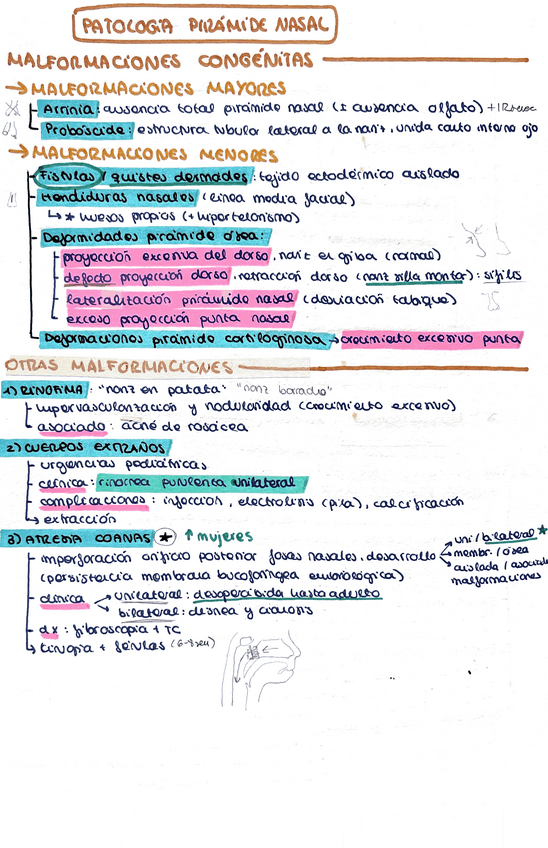 PATOLOGÍA PIRÁMIDE NASAL
MALFORMACIONES CONGÉNITAS
→ MALFORMACIONES MAYORES
Arrinia: ausencia total pirámide nasal (± ausencia olfato)
Probóscide: estructura tubular lateral a la nariz, unida canto interno ojo
→ MALFORMACIONES MENORES
Fístulas / quistes dermoides: tejido ectodérmico aislado
Hendiduras nasales (línea media facial)
↳ * huesos propios (+ hipertelorismo)
Deformidades pirámide ósea:
proyección excesiva del dorso, nariz en giba (normal)
defecto proyección dorso, retracción dorso (nariz silla montar): sífilis
lateralización pirámide nasal (desviación tabique)
exceso proyección punta nasal
Deformaciones pirámide cartilaginosa → crecimiento excesivo punta
OTRAS MALFORMACIONES
1) RINOFIMA: "nariz en patata" "nariz borracho"
hipervascularización y nodularidad (crecimiento excesivo)
asociado: acné de rosácea
2) CUERPOS EXTRAÑOS
urgencias pediátricas
clínica: rinorrea purulenta unilateral
complicaciones: infección, electrolisis (pila), calcificación
↳ extracción
3) ATRESIA COANAS ★ ↑ mujeres
imperforación orificio posterior fosas nasales, desarrollo
uni / bilateral ★
membr. / ósea
aislada / asociada malformaciones
(persistencia membrana bucofaríngea embriológica)
clínica → unilateral: desapercibida hasta adulto
bilateral: disnea y cianosis
dx: fibroscopia + TC
↳ cirugía + férulas (6-8 sem)